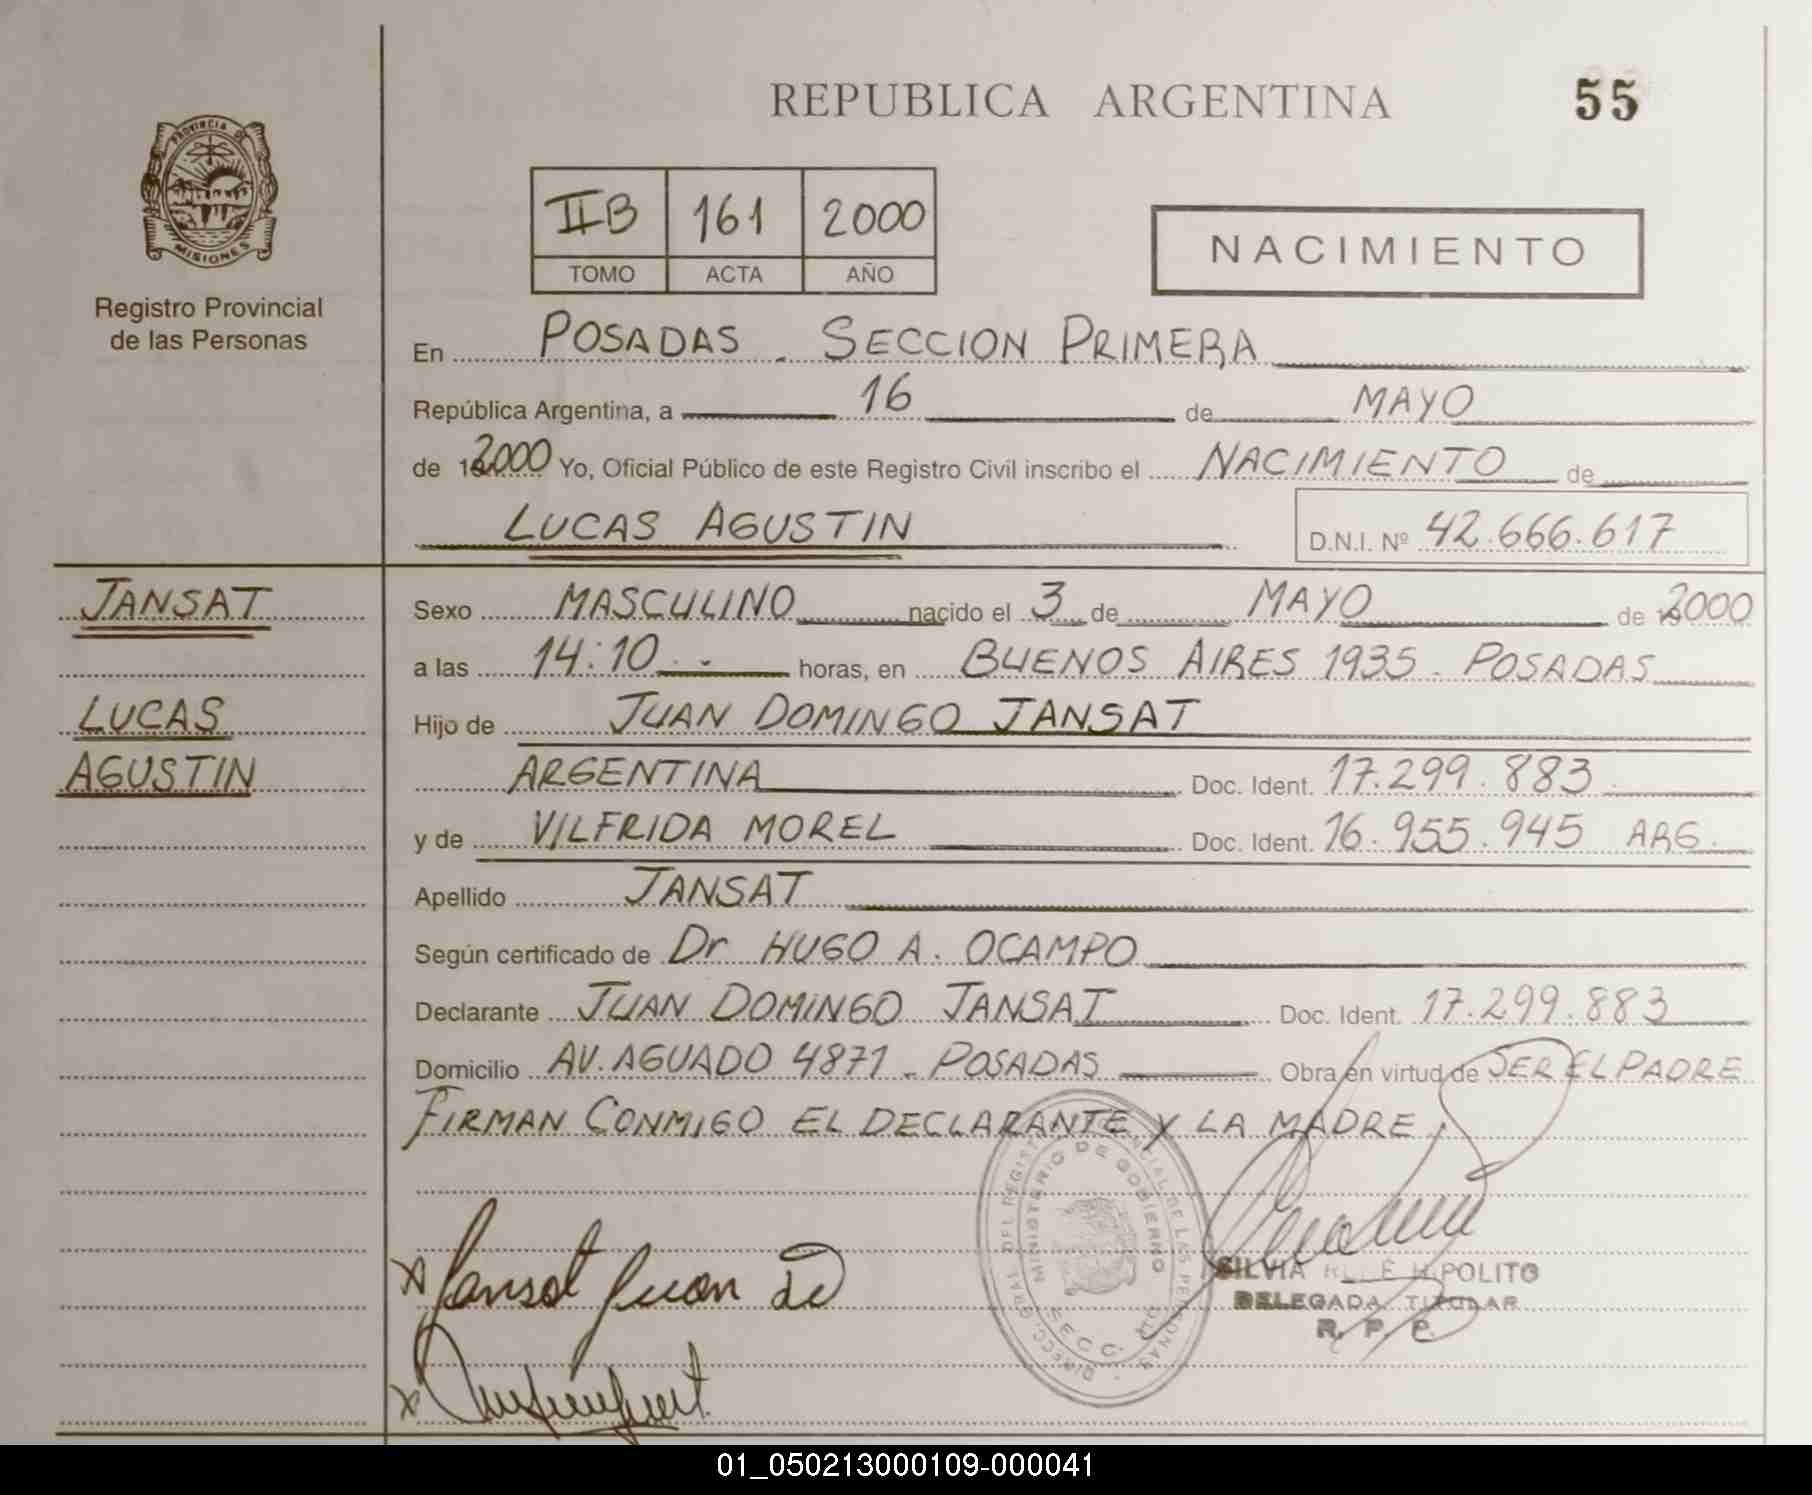 REPUBLICA ARGENTINA
55
PROVINCIA DE
MISIONES
Registro Provincial
de las Personas
IIB 161 2000
TOMO ACTA AÑO
NACIMIENTO
En POSADAS. SECCION PRIMERA
República Argentina, a 16 de MAYO
de 2000 Yo, Oficial Público de este Registro Civil inscribo el NACIMIENTO de
LUCAS AGUSTIN D.N.I. Nº 42.666.617
JANSAT
LUCAS
AGUSTIN
Sexo MASCULINO nacido el 3 de MAYO de 2000
a las 14:10.- horas, en BUENOS AIRES 1935. POSADAS
Hijo de JUAN DOMINGO JANSAT
ARGENTINA Doc. Ident. 17.299.883
y de VILFRIDA MOREL Doc. Ident. 16.955.945 ARG.
Apellido JANSAT
Según certificado de Dr HUGO A. OCAMPO
Declarante JUAN DOMINGO JANSAT Doc. Ident. 17.299.883
Domicilio AV. AGUADO 4871 - POSADAS Obra en virtud de SER EL PADRE
FIRMAN CONMIGO EL DECLARANTE Y LA MADRE.
Jansat Juan D
MINISTERIO DE GOBIERNO
SILVIA HIPOLITO
DELEGADA TITULAR
R. P. P.
01_050213000109-000041